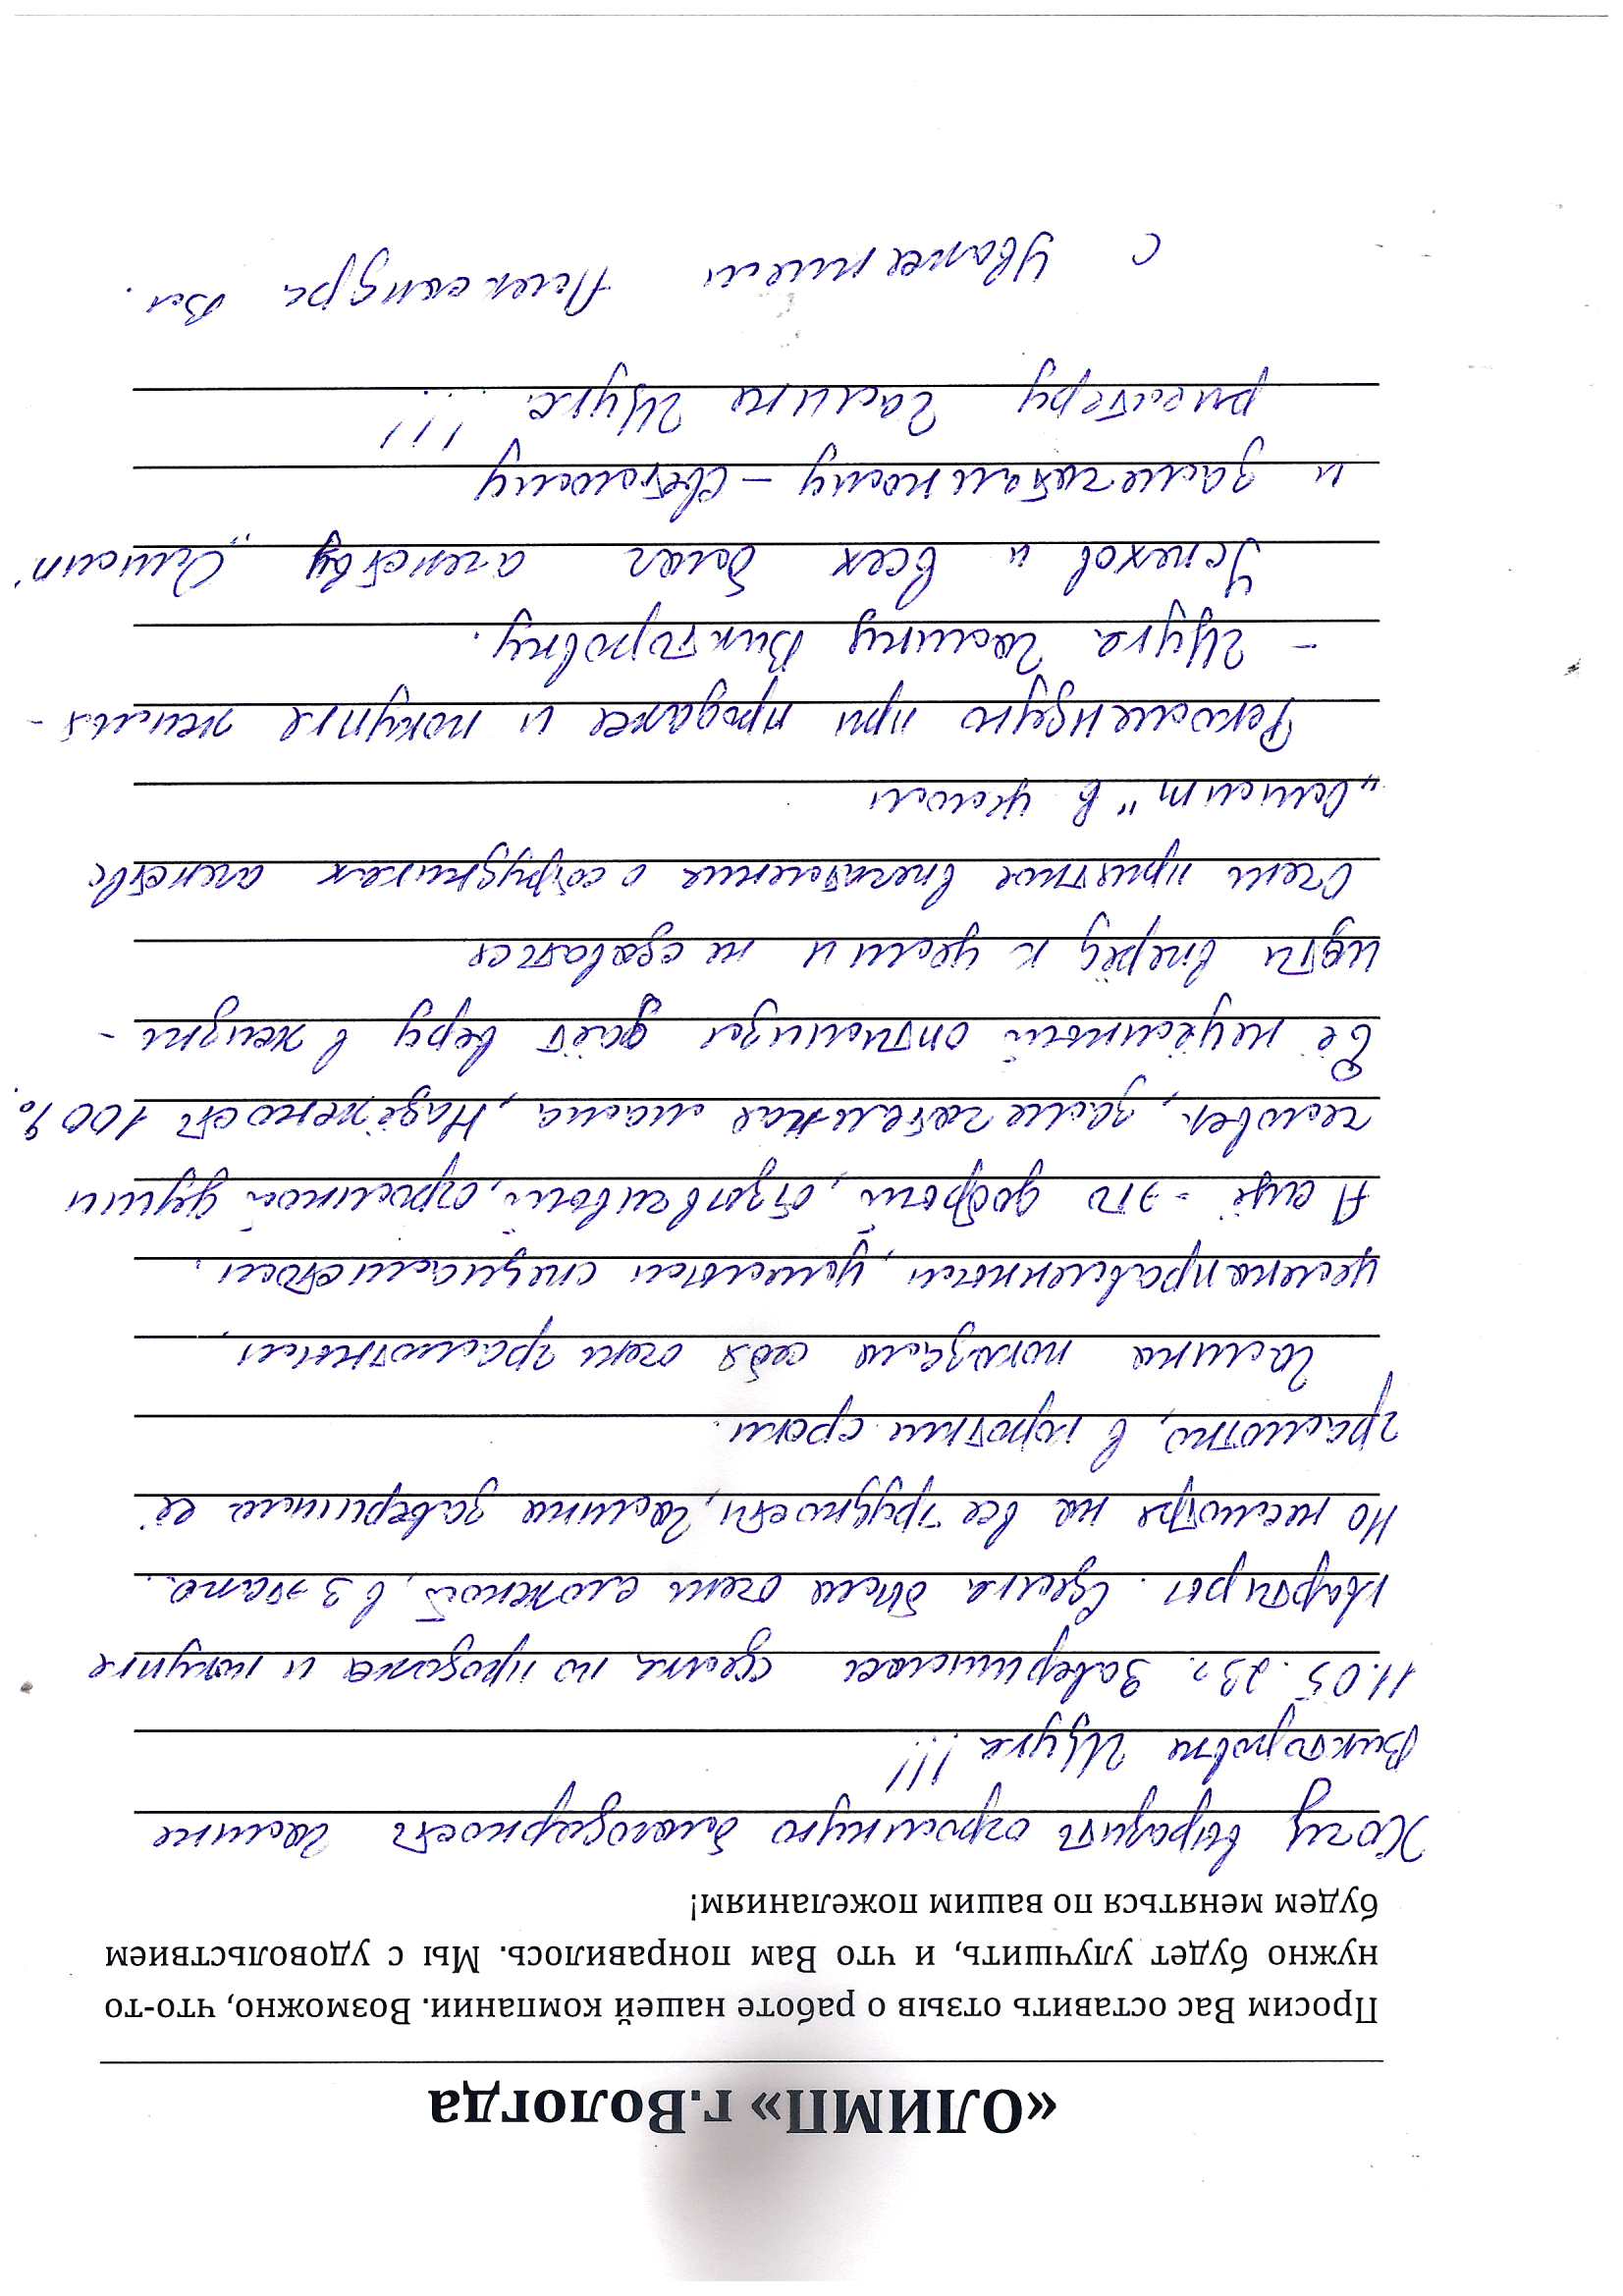 «ОЛИМП» г.Вологда
Просим Вас оставить отзыв о работе нашей компании. Возможно, что-то
нужно будет улучшить, и что Вам понравилось. Мы с удовольствием
будем меняться по вашим пожеланиям!
Хочу выразить огромную благодарность Галине
Викторовне Щука !!!
11.05.23г. Завершилась сделка по продаже и покупке
квартиры. Сделка была очень сложной, в 3 этапа.
Но несмотря на все трудности, Галина завершила её
грамотно, в короткий срок.
Галина показала себя очень грамотным,
целенаправленным, умелым специалистом.
А ещё - это добрый, отзывчивый, огромной души
человек, замечательная мама, Надёжность 100%.
Её неуёмный оптимизм даёт веру в жизнь -
идти вперёд к цели и не сдаваться
Очень приятное впечатление о сотрудниках агенства
„Олимп" в целом
Рекомендую при продаже и покупке жилья -
- Щука Галину Викторовну.
Успехов и всех благ агенству „Олимп"
и замечательному - Светлому
риелтеру Галине Щуке !!!
С Уважением Александра Вл.